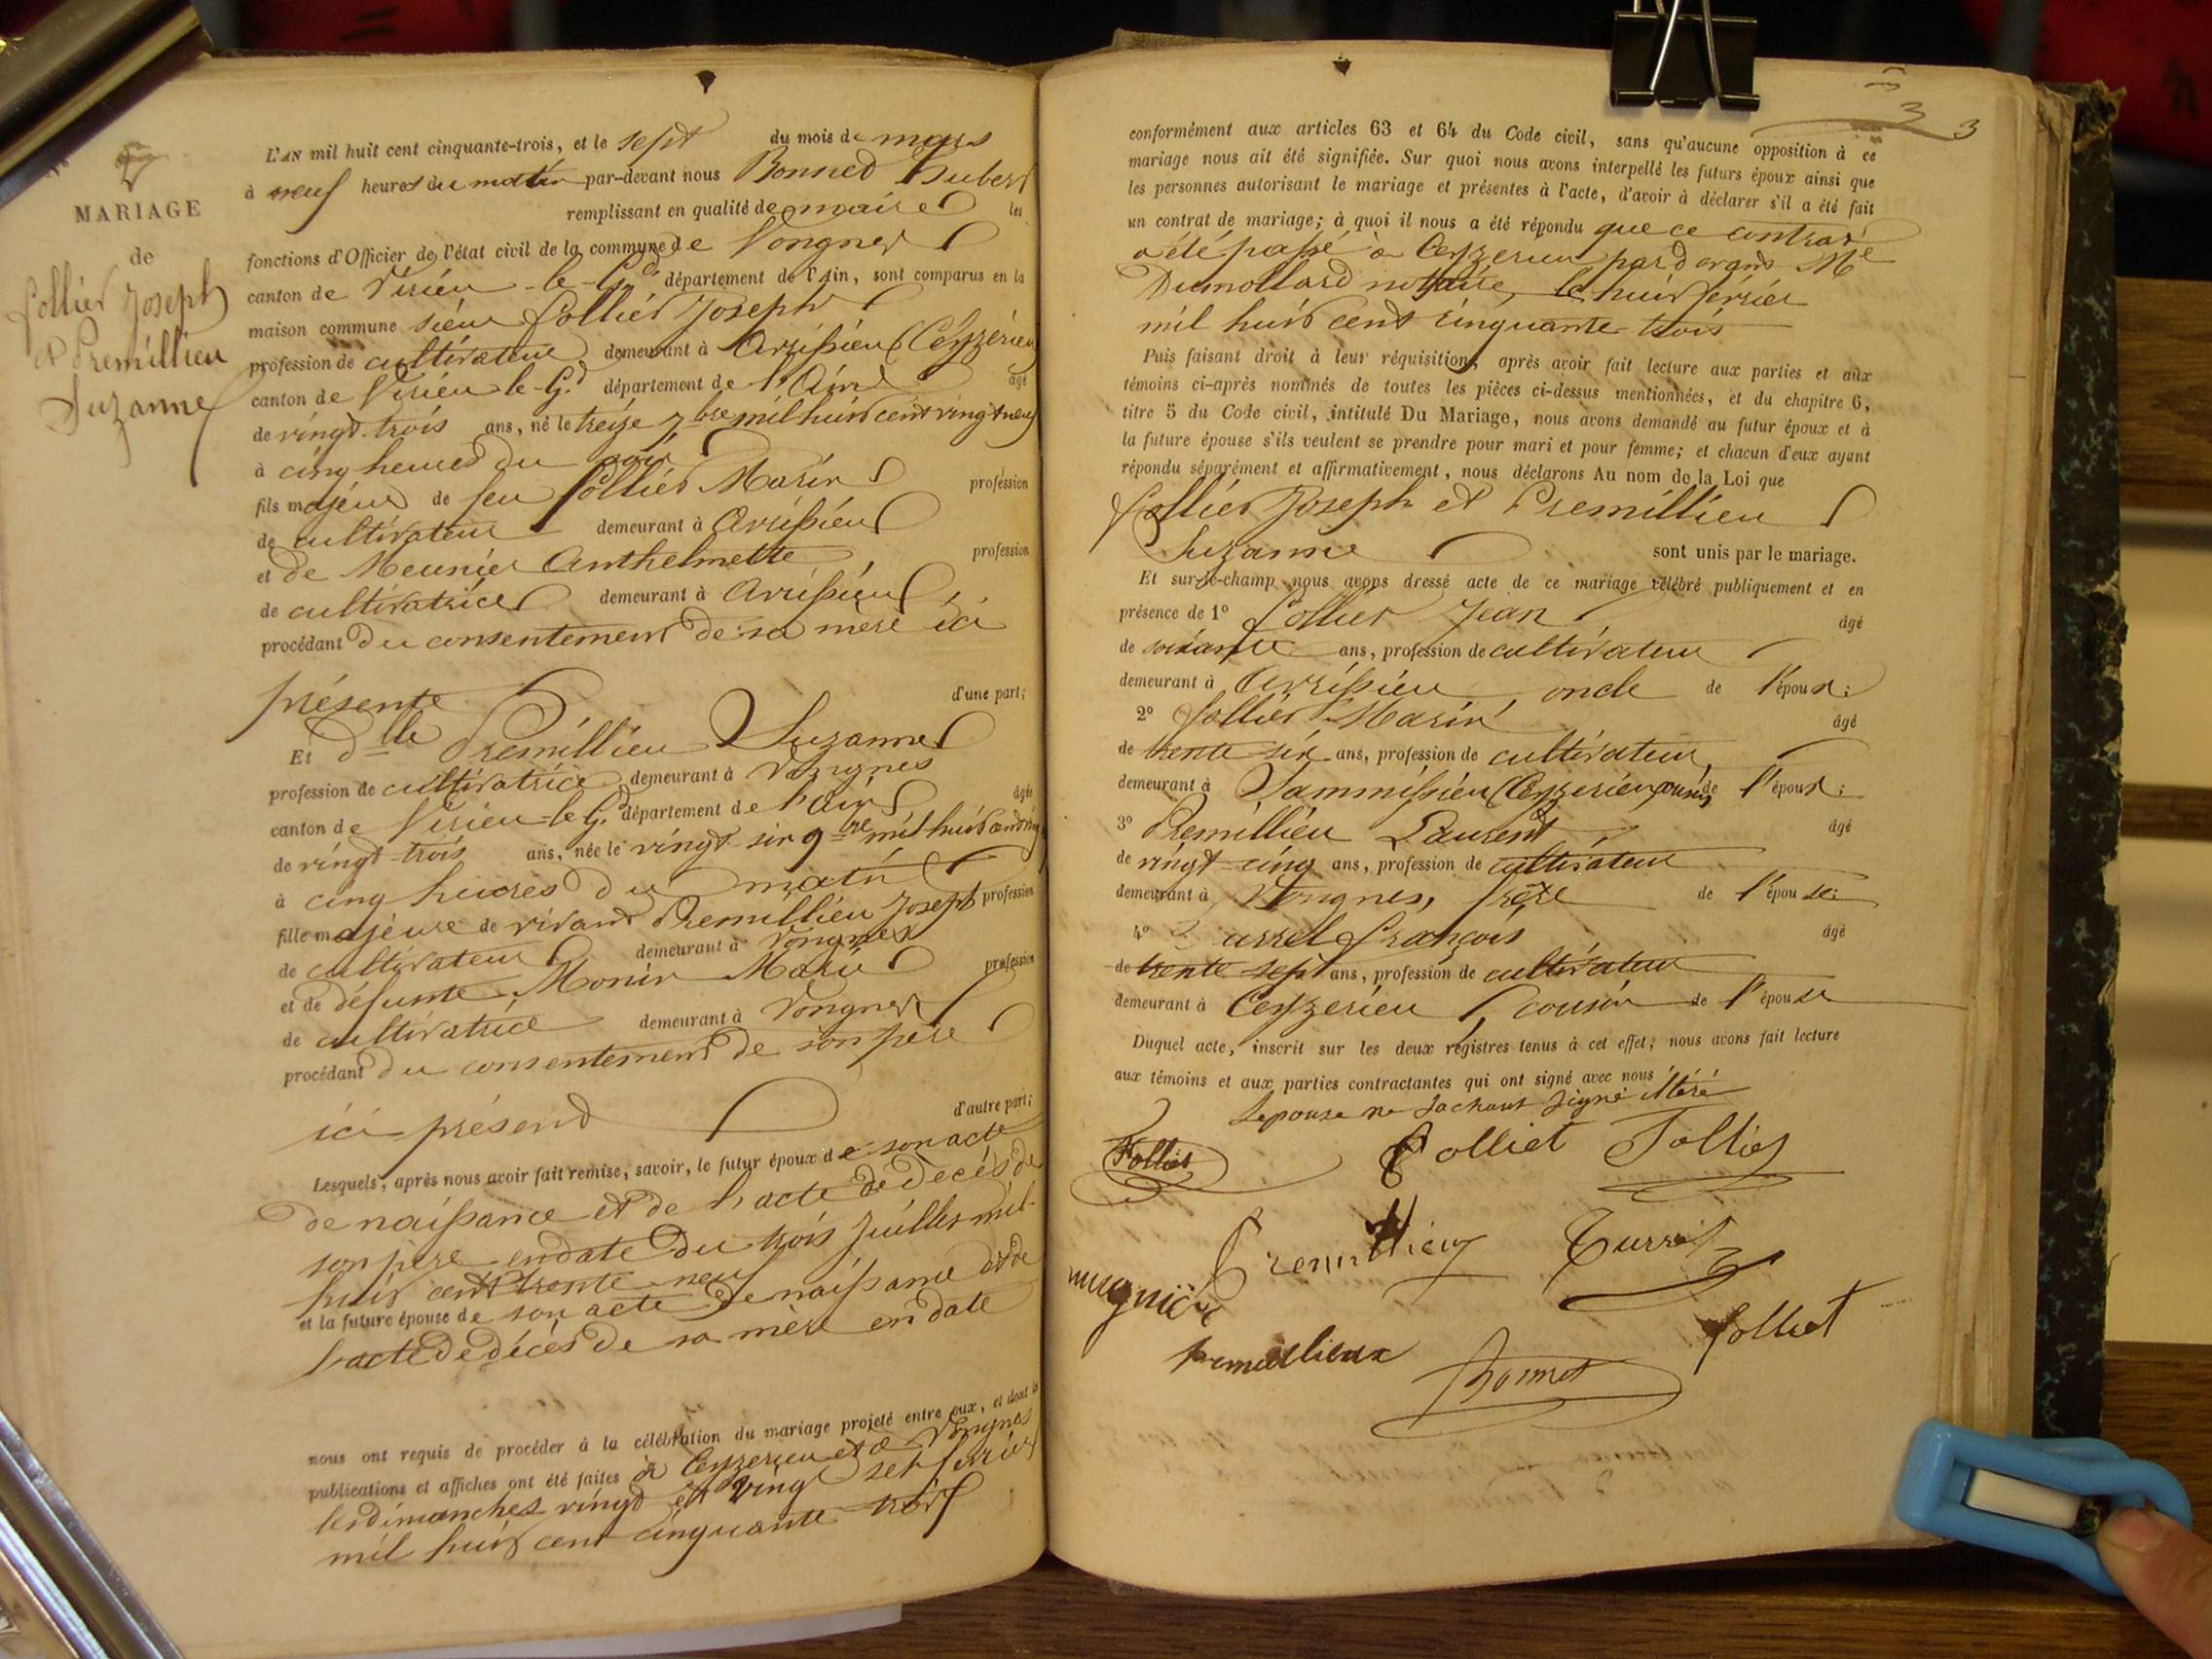 MARIAGE
de
follier Joseph
et Premillieu
Suzanne
L'AN mil huit cent cinquante-trois, et le sept du mois de mars
à neuf heures du matin par-devant nous Bonned hubert
remplissant en qualité de maire les
fonctions d'Officier de l'état civil de la commune de Vongnes
canton de Virieu-le-Gd département de l'Ain, sont comparus en la
maison commune sieur follier Joseph
profession de cultivateur demeurant à Arvissieu (Ceyzerieu
canton de Virieu le Gd département de l'Ain âgé
de vingt-trois ans, né le treize 7bre mil huit cent vingt neuf
à cinq heures du soir
fils majeur de feu follier Marin profession
de cultivateur demeurant à Arvissieu
et de Meunier Anthelmette, profession
de cultivatrice demeurant à Arvissieu,
procédant du consentement de sa mere ici
présente d'une part;
Et dlle Premillieu Suzanne
profession de cultivatrice demeurant à Vongnes
canton de Virieu-le-Gd département de l'ain âgée
de vingt-trois ans, née le vingt six 9bre mil huit cent
à cinq heures du matin
fille majeure de vivant Premillieu Joseph profession
de cultivateur demeurant à Vongnes
et de défunte Monin Marie profession
de cultivatrice demeurant à Vongnes
procédant du consentement de son père
ici présent d'autre part;
Lesquels, après nous avoir fait remise, savoir, le futur époux de son acte
de naissance et de l'acte de decés de
son père en date du trois Juillet mil-
huit cent trente neuf
et la future épouse de son acte de naissance et de
l'acte de décés de sa mère en date
nous ont requis de procéder à la célébration du mariage projeté entre eux, et dont les
publications et affiches ont été faites à Ceyzerieu et à Vongnes
les dimanches vingt et vingt sept fevrier
mil huit cent cinquante trois
3 3
conformément aux articles 63 et 64 du Code civil, sans qu'aucune opposition à ce
mariage nous ait été signifiée. Sur quoi nous avons interpellé les futurs époux ainsi que
les personnes autorisant le mariage et présentes à l'acte, d'avoir à déclarer s'il a été fait
un contrat de mariage; à quoi il nous a été répondu que ce contrat
a été passé à Ceyzerieu pardevant Me
Dumollard notaire, le huit fevrier
mil huit cent cinquante trois
Puis faisant droit à leur réquisition, après avoir fait lecture aux parties et aux
témoins ci-après nommés de toutes les pièces ci-dessus mentionnées, et du chapitre 6,
titre 5 du Code civil, intitulé Du Mariage, nous avons demandé au futur époux et à
la future épouse s'ils veulent se prendre pour mari et pour femme; et chacun d'eux ayant
répondu séparément et affirmativement, nous déclarons Au nom de la Loi que
follier Joseph et Premillieu
Suzanne sont unis par le mariage.
Et sur-le-champ nous avons dressé acte de ce mariage célébré publiquement et en
présence de 1° follier Jean âgé
de soixante ans, profession de cultivateur
demeurant à Arvissieu, oncle de l'époux;
2° follier Marin âgé
de trente six ans, profession de cultivateur,
demeurant à Sammissieu (Ceyzerieu) cousin de l'époux;
3° Premillieu Laurent âgé
de vingt-cinq ans, profession de cultivateur
demeurant à Vongnes, frère de l'épouse;
4° urrel françois âgé
de trente sept ans, profession de cultivateur
demeurant à Ceyzerieu, cousin de l'épouse
Duquel acte, inscrit sur les deux registres tenus à cet effet, nous avons fait lecture
aux témoins et aux parties contractantes qui ont signé avec nous
Lepouse ne sachant signé
Folliet Folliet Follies
Premillieu Turrel
mugnier
premillieux folliet
Bonnet